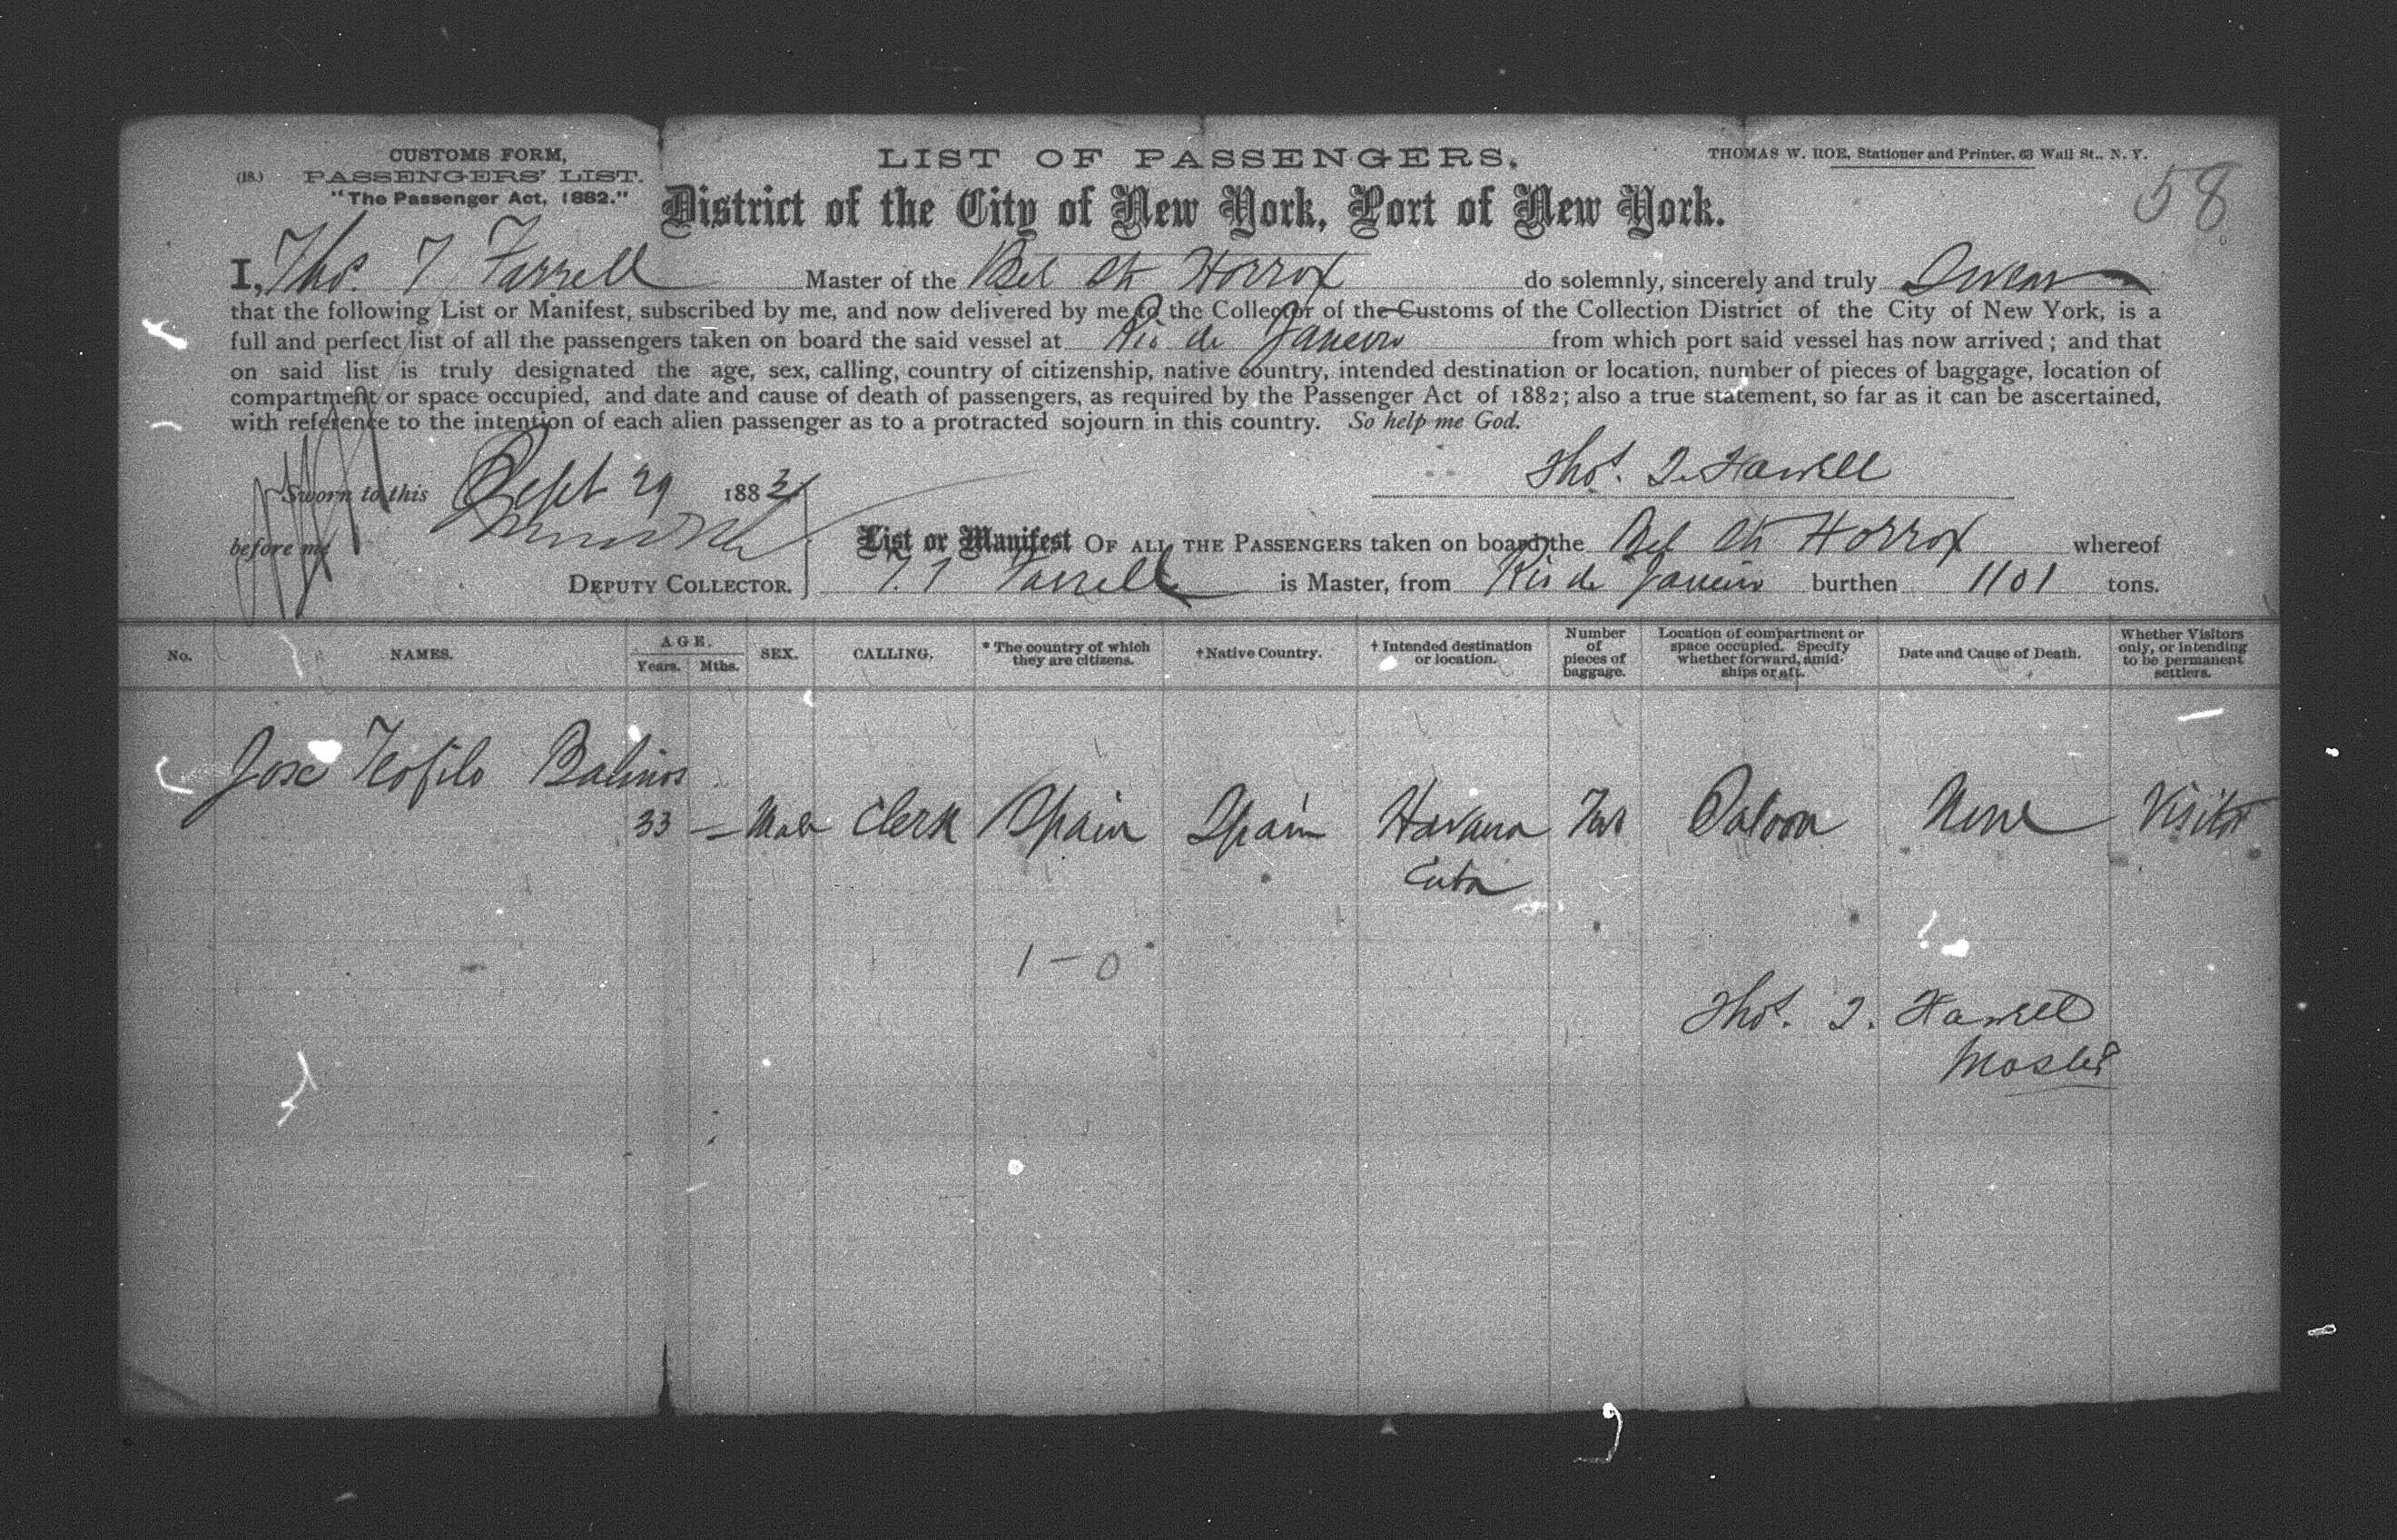 CUSTOMS FORM,
(18.) PASSENGERS' LIST.
"The Passenger Act, 1882."
LIST OF PASSENGERS.
THOMAS W. ROE, Stationer and Printer, 63 Wall St., N. Y.
58
District of the City of New York, Port of New York.
I, Thos. T Farrell Master of the Bel Str Horrox do solemnly, sincerely and truly Swear
that the following List or Manifest, subscribed by me, and now delivered by me to the Collector of the Customs of the Collection District of the City of New York, is a
full and perfect list of all the passengers taken on board the said vessel at Rio de Janeiro from which port said vessel has now arrived; and that
on said list is truly designated the age, sex, calling, country of citizenship, native country, intended destination or location, number of pieces of baggage, location of
compartment or space occupied, and date and cause of death of passengers, as required by the Passenger Act of 1882; also a true statement, so far as it can be ascertained,
with reference to the intention of each alien passenger as to a protracted sojourn in this country. So help me God.
Thos. T. Farrell
Sworn to this Sept 29 1883
before me
DEPUTY COLLECTOR.
List or Manifest OF ALL THE PASSENGERS taken on board the Bel Str Horrox whereof
T. T Farrell is Master, from Rio de Janeiro burthen 1101 tons.
No. NAMES. AGE. Years. Mths. SEX. CALLING. * The country of which they are citizens. † Native Country. † Intended destination or location. Number of pieces of baggage. Location of compartment or space occupied. Specify whether forward, amidships or aft. Date and Cause of Death. Whether Visitors only, or intending to be permanent settlers.
Jose Teofilo Balinos
33 — Male Clerk Spain Spain Havana Two Saloon None Visitor
Cuba
1 - 0
Thos. T. Farrell
Master